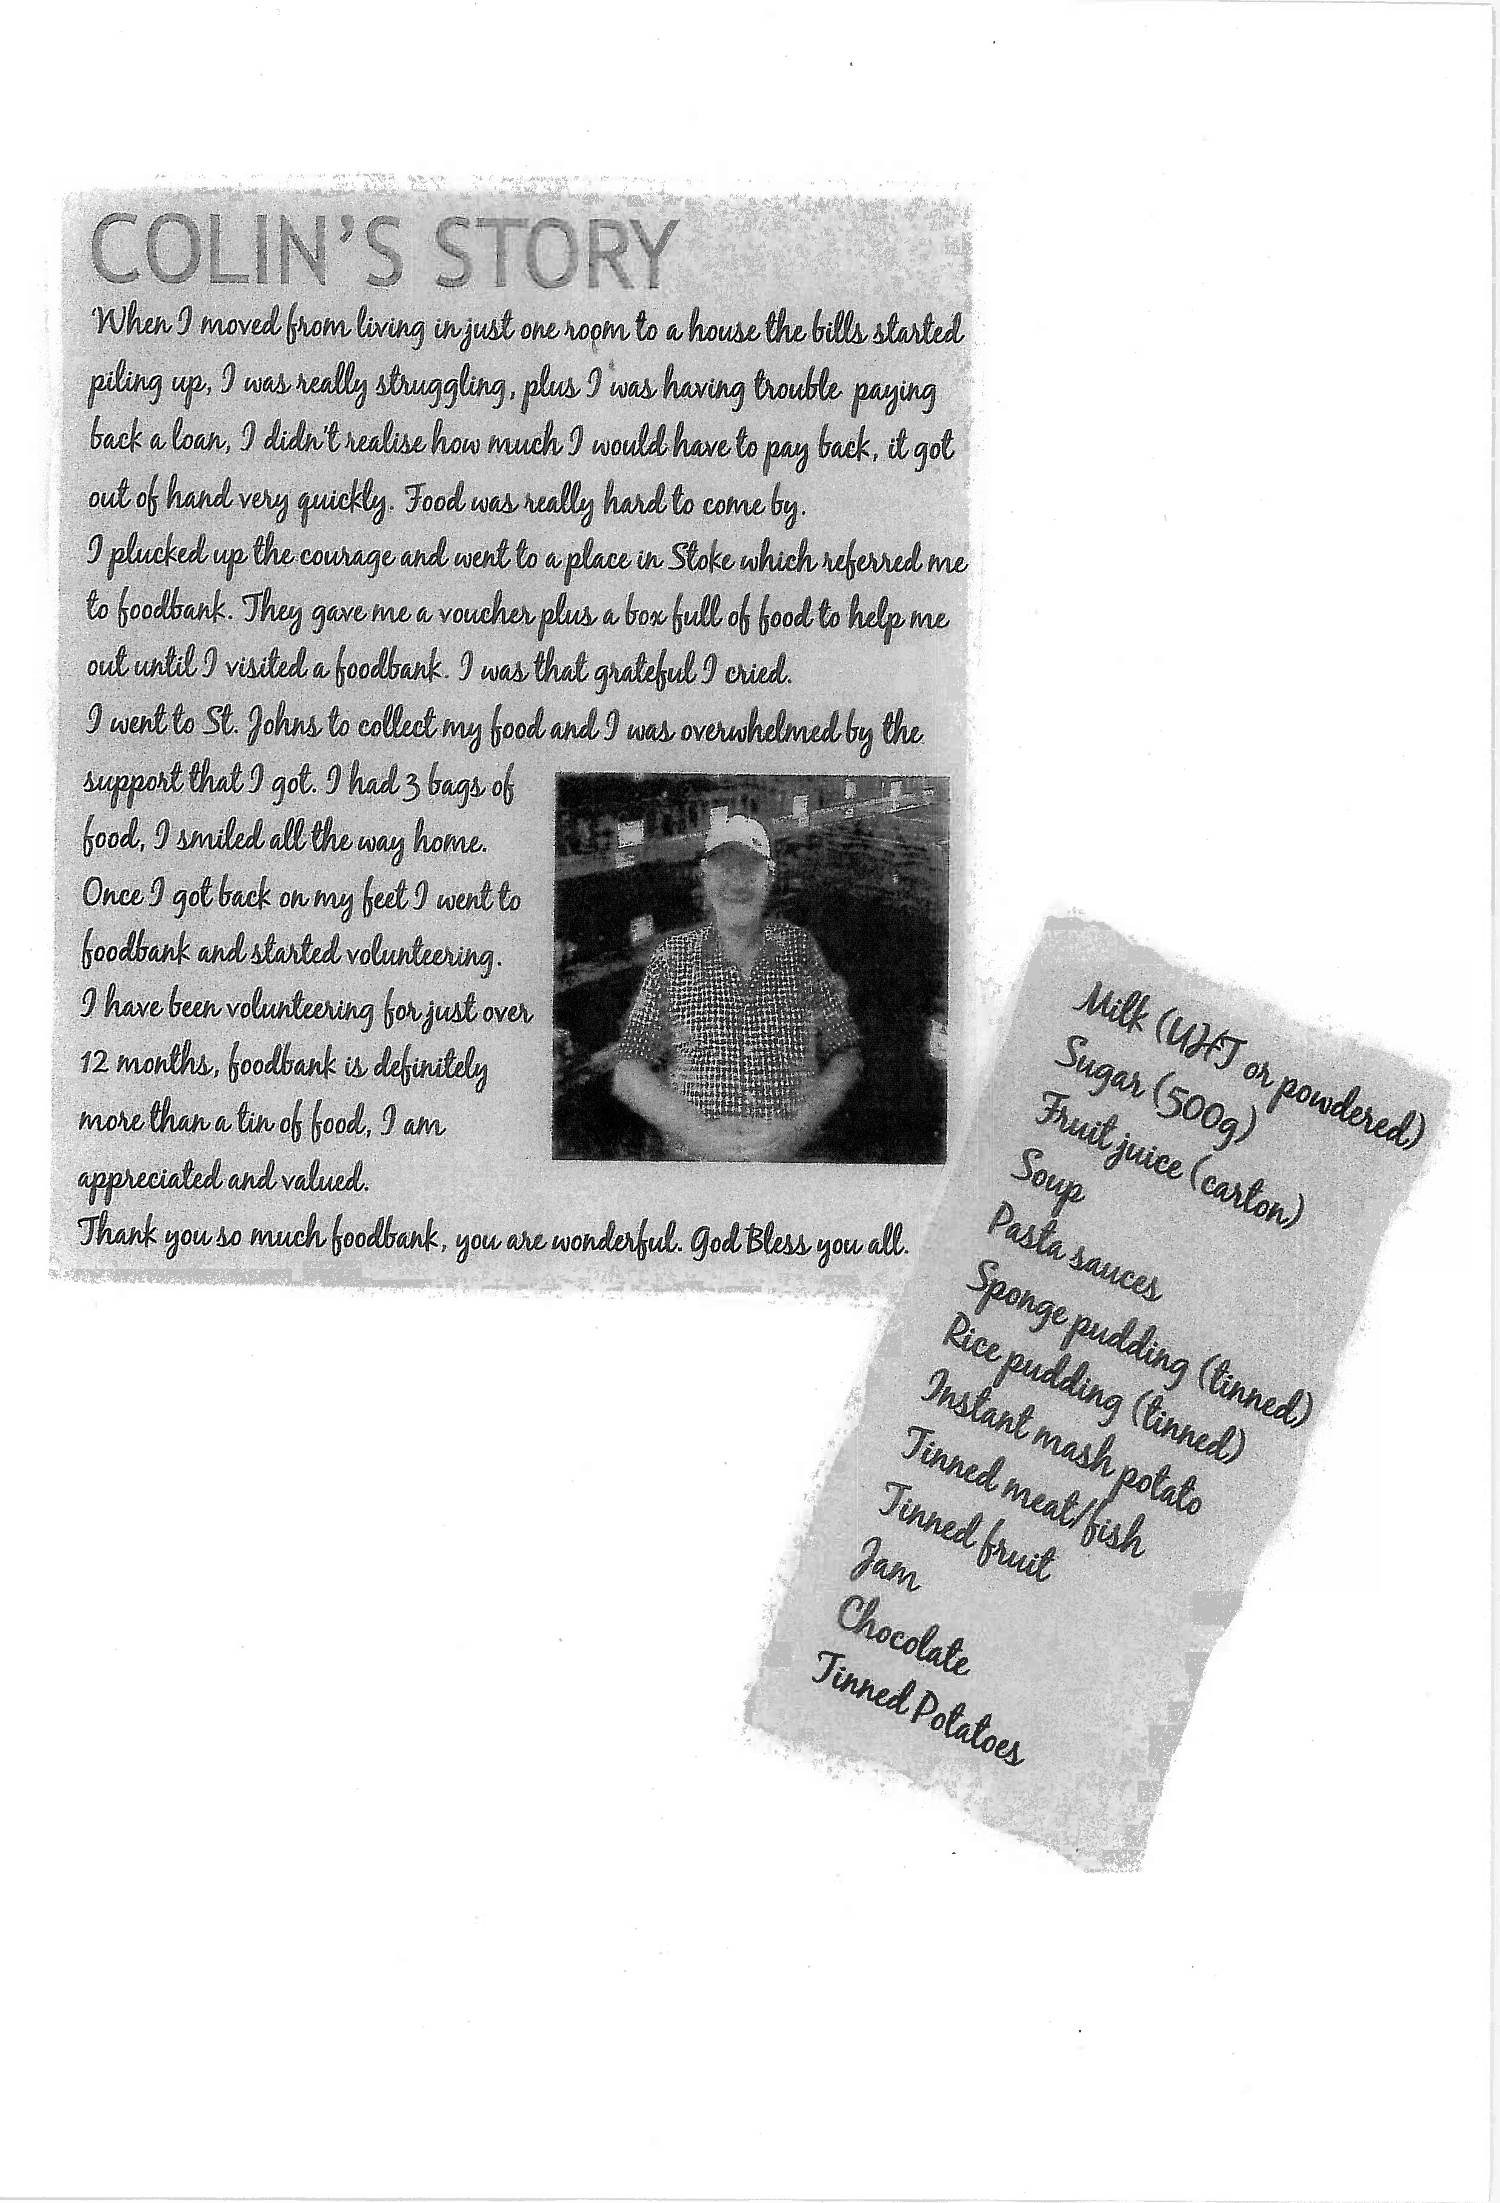 COLIN'S STORY
When I moved from living in just one room to a house the bills started
piling up, I was really struggling, plus I was having trouble paying
back a loan, I didn't realise how much I would have to pay back, it got
out of hand very quickly. Food was really hard to come by.
I plucked up the courage and went to a place in Stoke which referred me
to foodbank. They gave me a voucher plus a box full of food to help me
out until I visited a foodbank. I was that grateful I cried.
I went to St. Johns to collect my food and I was overwhelmed by the
support that I got. I had 3 bags of
food, I smiled all the way home.
Once I got back on my feet I went to
foodbank and started volunteering.
I have been volunteering for just over
12 months, foodbank is definitely
more than a tin of food, I am
appreciated and valued.
Thank you so much foodbank, you are wonderful. God Bless you all.
Milk (UHT or powdered)
Sugar (500g)
Fruit juice (carton)
Soup
Pasta sauces
Sponge pudding (tinned)
Rice pudding (tinned)
Instant mash potato
Tinned meat/fish
Tinned fruit
Jam
Chocolate
Tinned Potatoes